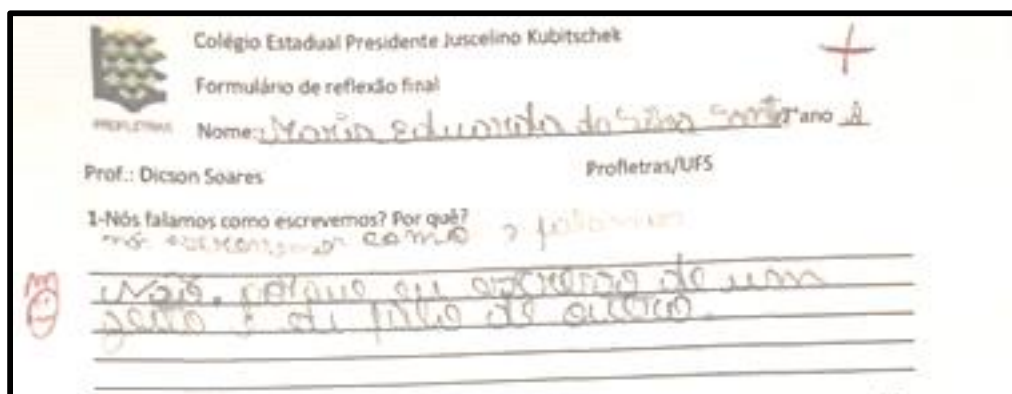 Colégio Estadual Presidente Juscelino Kubitschek
Formulário de reflexão final
PROFLETRAS
Nome: Maria Eduarda da Silva Santos ano A
Prof.: Dicson Soares Profletras/UFS
1-Nós falamos como escrevemos? Por quê?
nós escrevemos como falamos
Não, porque eu escrevo de um
jeito e di falo de outro.